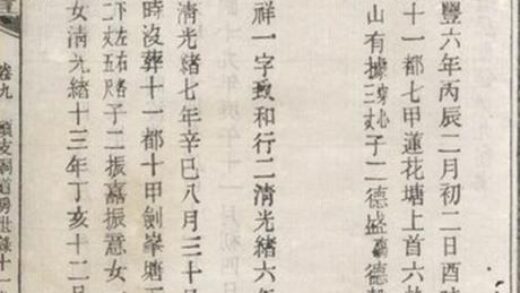 豐六年丙辰二月初二日酉時
十一都七甲蓮花塘上首六
山有據穿心三丈子二德盛德
祥一字致和行二清光緒六年
清光緒七年辛巳八月三十日
時沒葬十一都十甲劍峯塘
下左右二丈五尺子二振嘉振意女
女清光緒十三年丁亥十二月
卷九 支房世錄十一